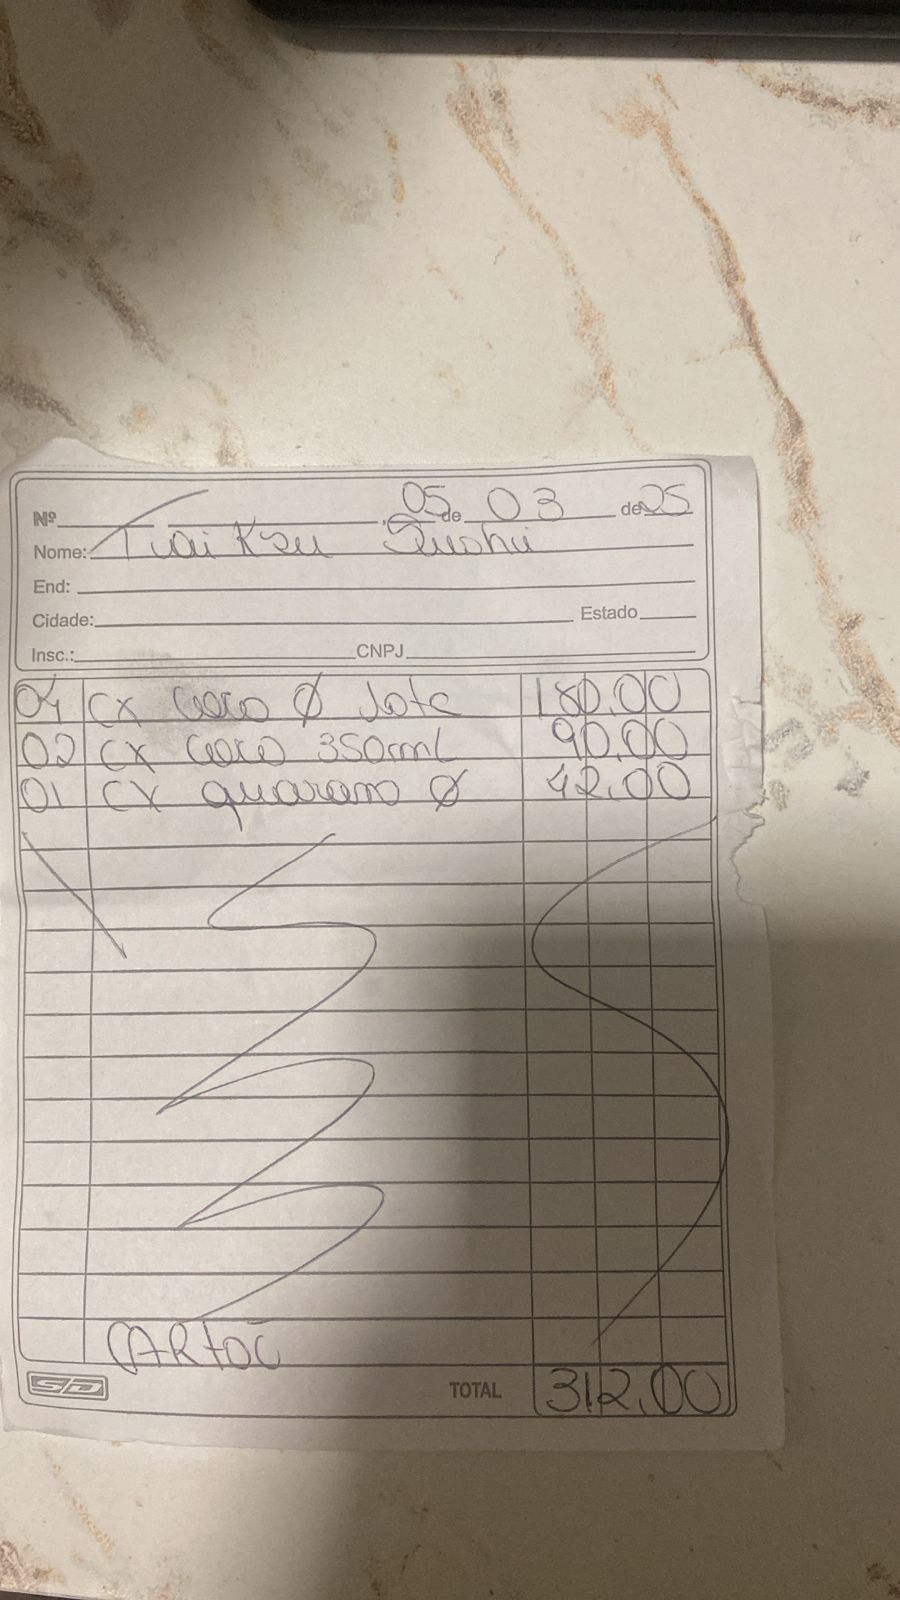 Nº 05 de 03 de 25
Nome: Sushi
End:
Cidade: Estado
Insc.: CNPJ
04 CX coca Ø lata 180,00
02 CX coca 350ml 90,00
01 CX guarana Ø 42,00
CARtão
SD TOTAL 312,00